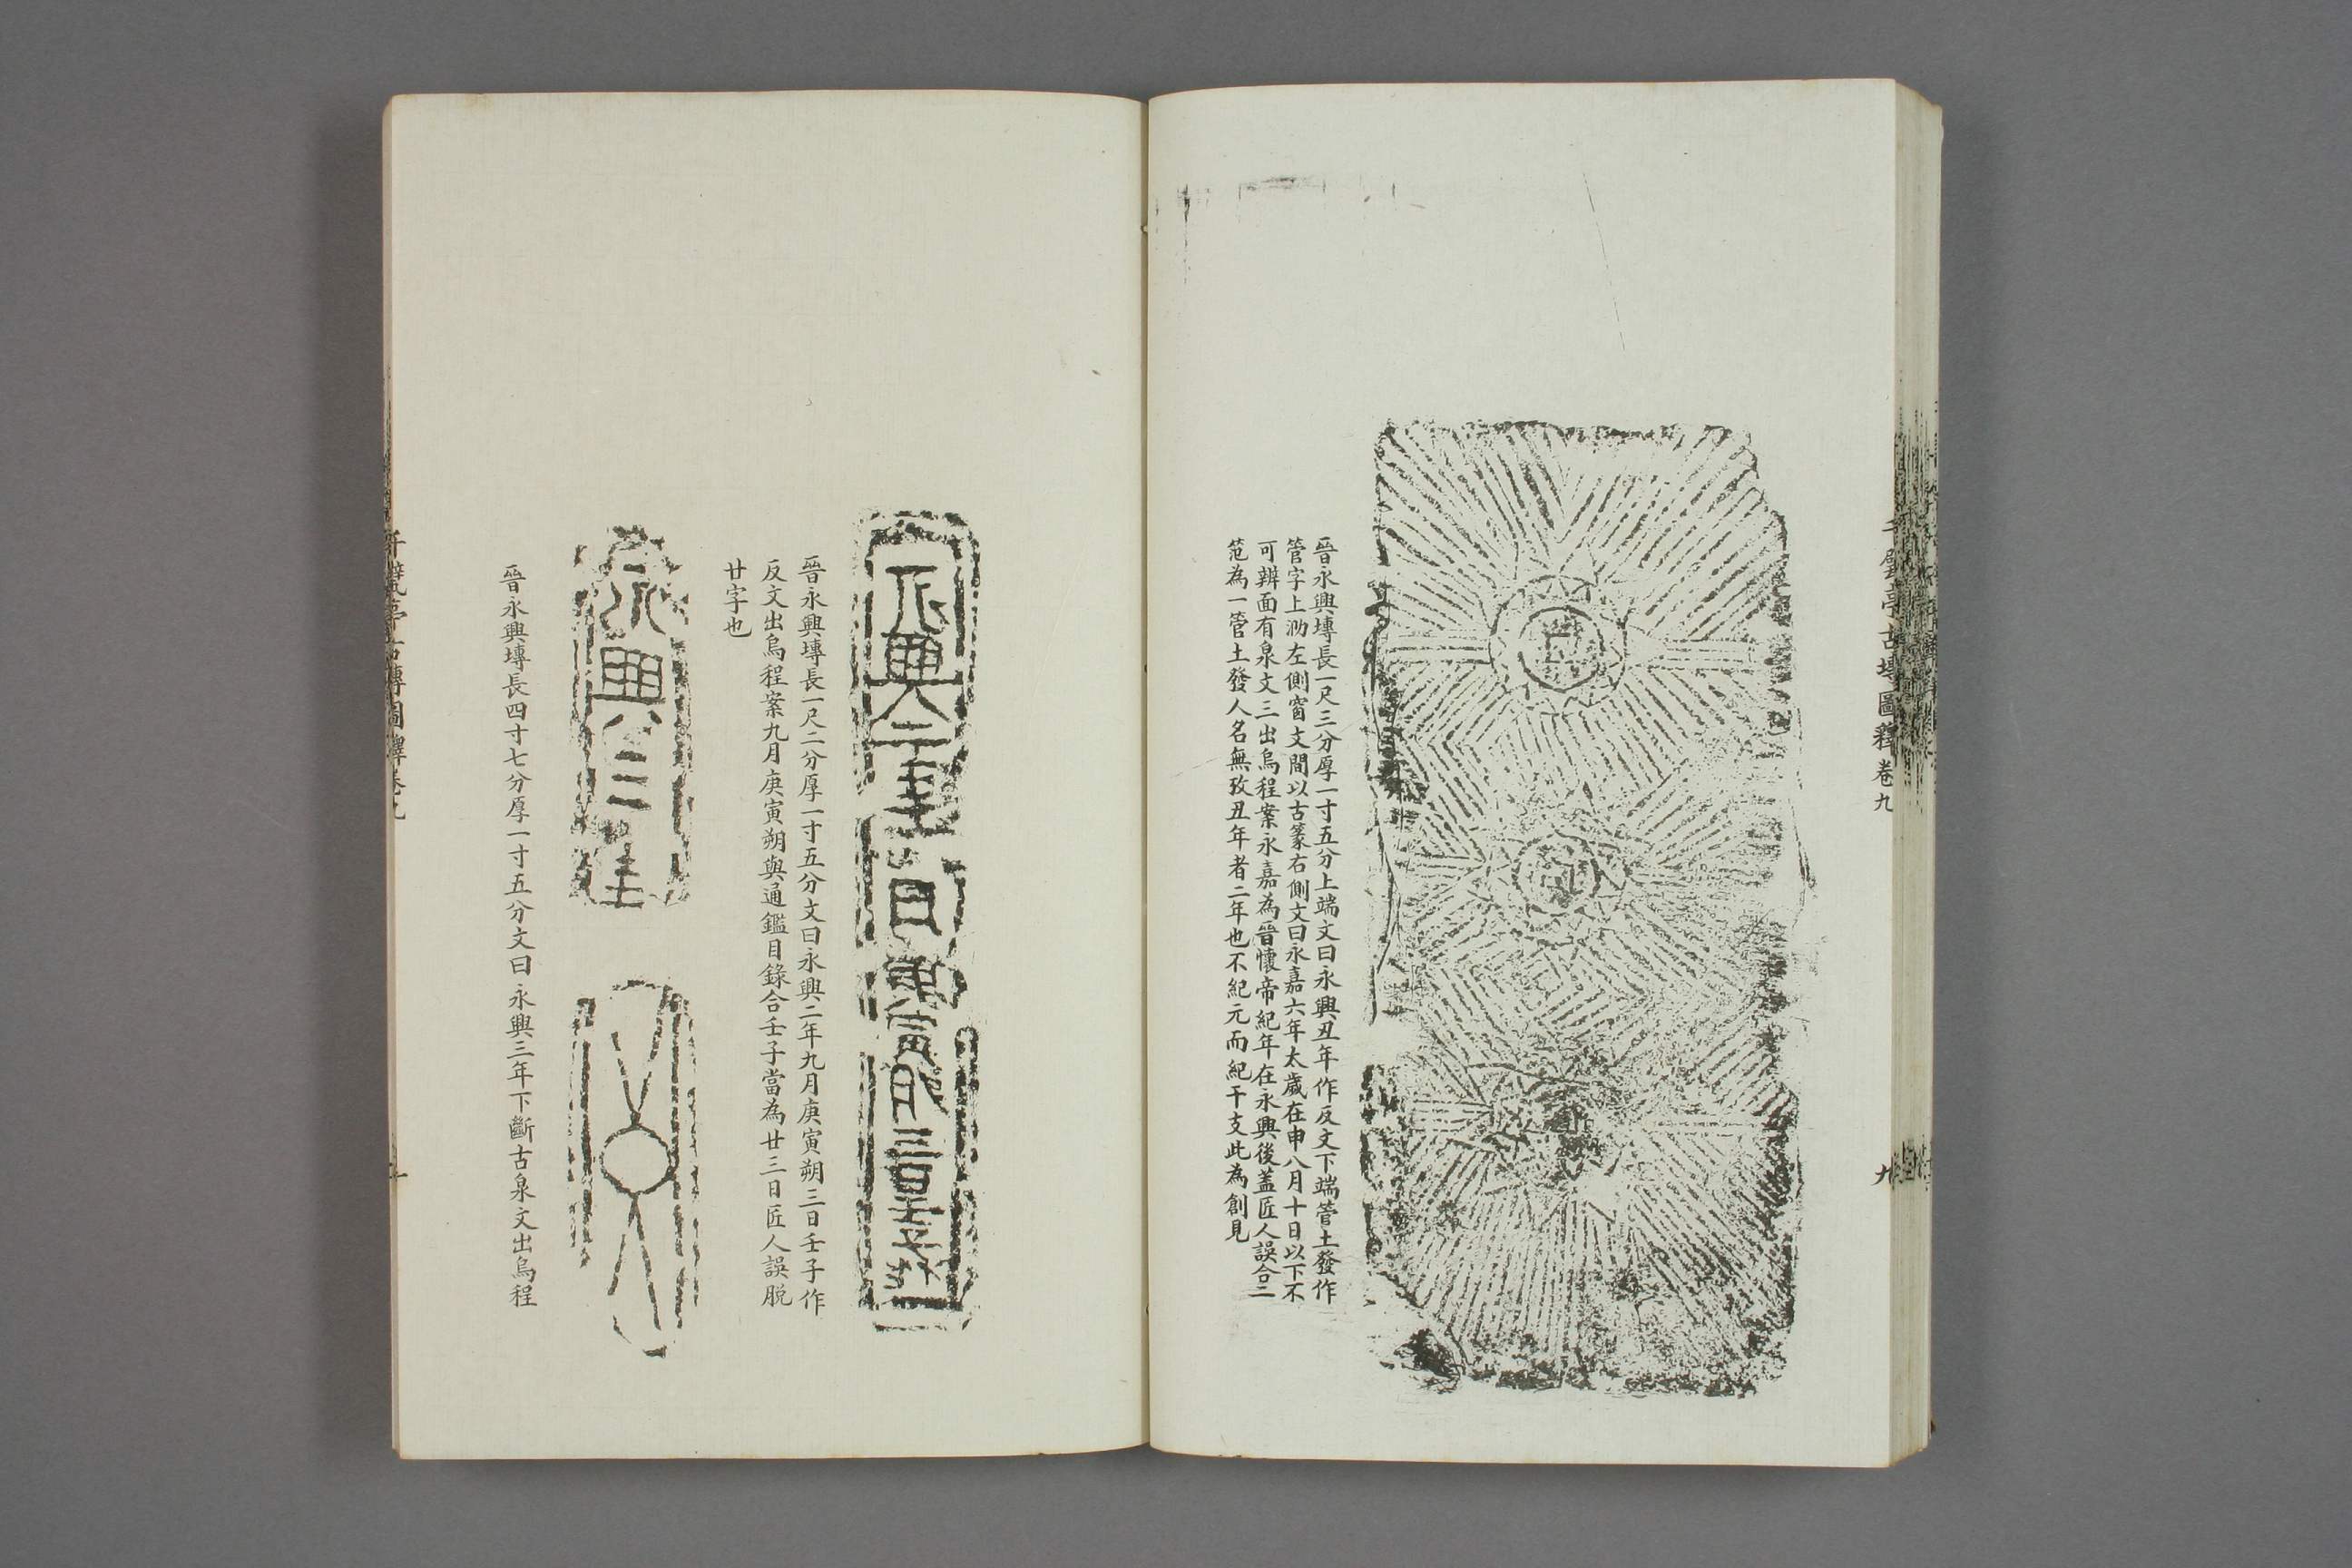 千甓亭古塼圖釋卷九
九
晉永興塼長一尺三分厚一寸五分上端文曰永興丑年作反文下端管土發作
管字上泐左側窗文間以古篆右側文曰永嘉六年太歲在申八月十日以下不
可辨面有泉文三出烏程案永嘉為晉懷帝紀年在永興後蓋匠人誤合二
范為一管土發人名無攷丑年者二年也不紀元而紀干支此為創見
晉永興塼長一尺二分厚一寸五分文曰永興二年九月庚寅朔三日壬子作
反文出烏程案九月庚寅朔與通鑑目錄合壬子當為廿三日匠人誤脫
廿字也
永興三年
晉永興塼長四寸七分厚一寸五分文曰永興三年下斷古泉文出烏程
千甓亭古塼圖釋卷九